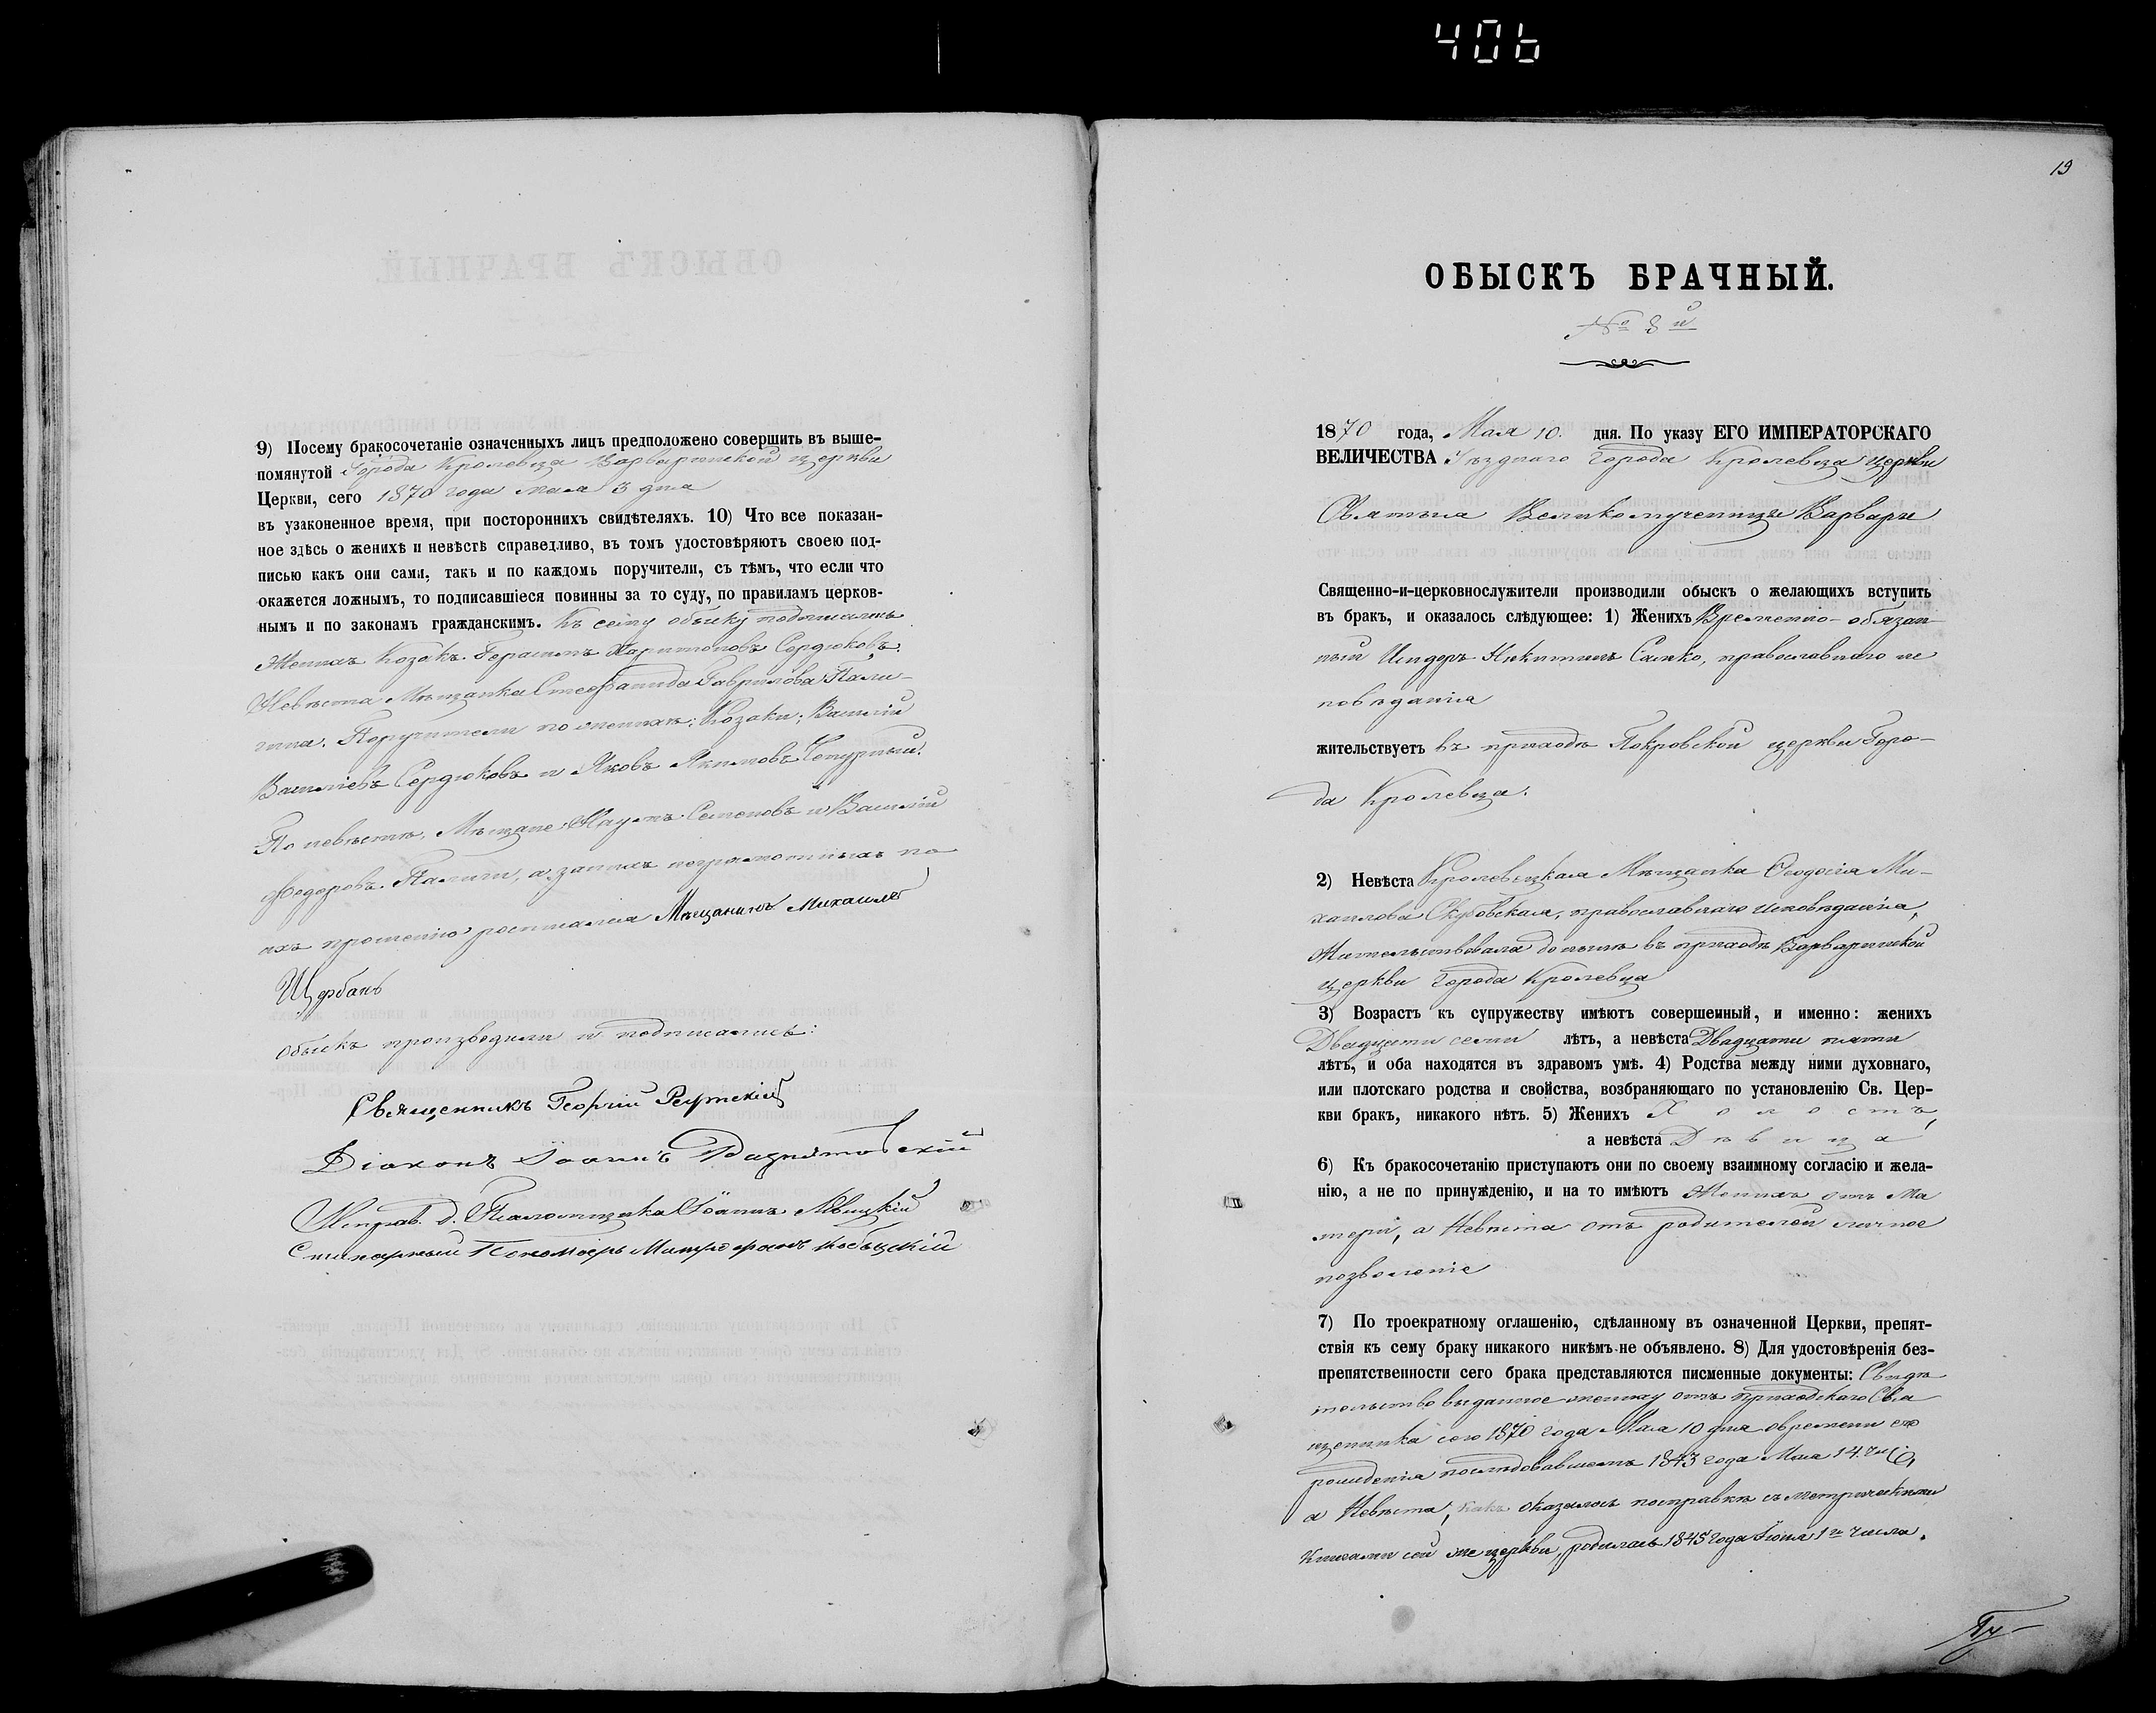 406
9) Посему бракосочетаніе означенныхъ лицъ предположено совершить въ выше-
помянутой Города Кролевца Варваринской церкви
Церкви, сего 1870 года мая 3 дня
въ узаконенное время, при постороннихъ свидѣтеляхъ. 10) Что все показан-
ное здѣсь о женихѣ и невѣстѣ справедливо, въ томъ удостовѣряютъ своею под-
писью какъ они сами, такъ и по каждомъ поручители, съ тѣмъ, что если что
окажется ложнымъ, то подписавшіеся повинны за то суду, по правиламъ церков-
нымъ и по законамъ гражданскимъ. Къ сему обыску подписались
Женихъ Козакъ Герасимъ Харитоновъ Сердюковъ.
Невѣста Мѣщанка Стефанида Гаврилова Пали-
гина. Поручители по женихѣ: Козаки: Василій
Василіевъ Сердюковъ и Яковъ Якимовъ Чепурный.
По невѣстѣ, Мѣщане Наумъ Семеновъ и Василій
Федоровъ Палиги, а занихъ неграмотныхъ по
ихъ прошенію росписался Мѣщанинъ Михаилъ
Щербань
Обыскъ производили и подписались:
Священникъ Георгій Реутскій
Діаконъ Іоаннъ
Исправ. д. Псаломщика Іоаннъ Левицкій
Пономарь Митрофанъ
19
ОБЫСКЪ БРАЧНЫЙ.
№ 8й
1870 года, Мая 10. дня. По указу ЕГО ИМПЕРАТОРСКАГО
ВЕЛИЧЕСТВА Уѣзднаго Города Кролевца церкви
Святыя Великомученицы Варвары
Священно-и-церковнослужители производили обыскъ о желающихъ вступить
въ бракъ, и оказалось слѣдующее: 1) Женихъ Временно-обязан-
ный Исидоръ Никитинъ Сапко, православнаго ис
повѣданія
жительствуетъ въ приходѣ Покровской церкви Горо-
да Кролевца.
2) Невѣста Кролевецкая Мѣщанка Феодосія Ми-
хаилова Скубовская, православнаго исповѣданія,
Жительствовала донынѣ въ приходѣ Варваринской
церкви города Кролевца
3) Возрастъ къ супружеству имѣютъ совершенный, и именно: женихъ
Двадцати семи лѣтъ, а невѣста Двадцати пяти
лѣтъ, и оба находятся въ здравомъ умѣ. 4) Родства между ними духовнаго,
или плотскаго родства и свойства, возбраняющаго по установленію Св. Цер-
кви бракъ, никакого нѣтъ. 5) Женихъ Холостъ,
а невѣста Дѣвица
6) Къ бракосочетанію приступаютъ они по своему взаимному согласію и жела-
нію, а не по принужденію, и на то имѣютъ Женихъ отъ Ма
тери, а Невѣста отъ родителей личное
позволеніе
7) По троекратному оглашенію, сдѣланному въ означенной Церкви, препят-
ствія къ сему браку никакого никѣмъ не объявлено. 8) Для удостовѣренія без-
препятственности сего брака представляются писменные документы: Свидѣ
тельство выданное жениху отъ приходскаго Свя
щенника сего 1870 года Мая 10 дня овремени его
рожденія послѣдовавшемъ 1843 года Мая 14.
а Невѣста, какъ оказалось посправкѣ съ метрическими
книгами сей же церкви, родилась 1845 года Іюня 1го числа.